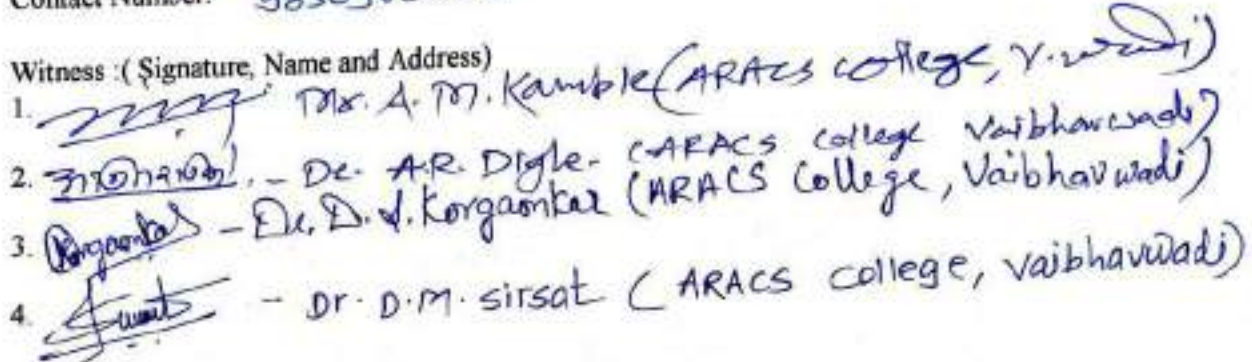 Contact Number:
Witness :( Signature, Name and Address)
1. Mr. A. M. Kamble (ARACS college, V.wadi)
2. - Dr. A.R. Digle- (ARACS college Vaibhavwadi)
3. Korgaonkar - Dr. D. S. Korgaonkar (ARACS College, Vaibhavwadi)
4. - Dr. D.M. sirsat ( ARACS college, vaibhavwadi)